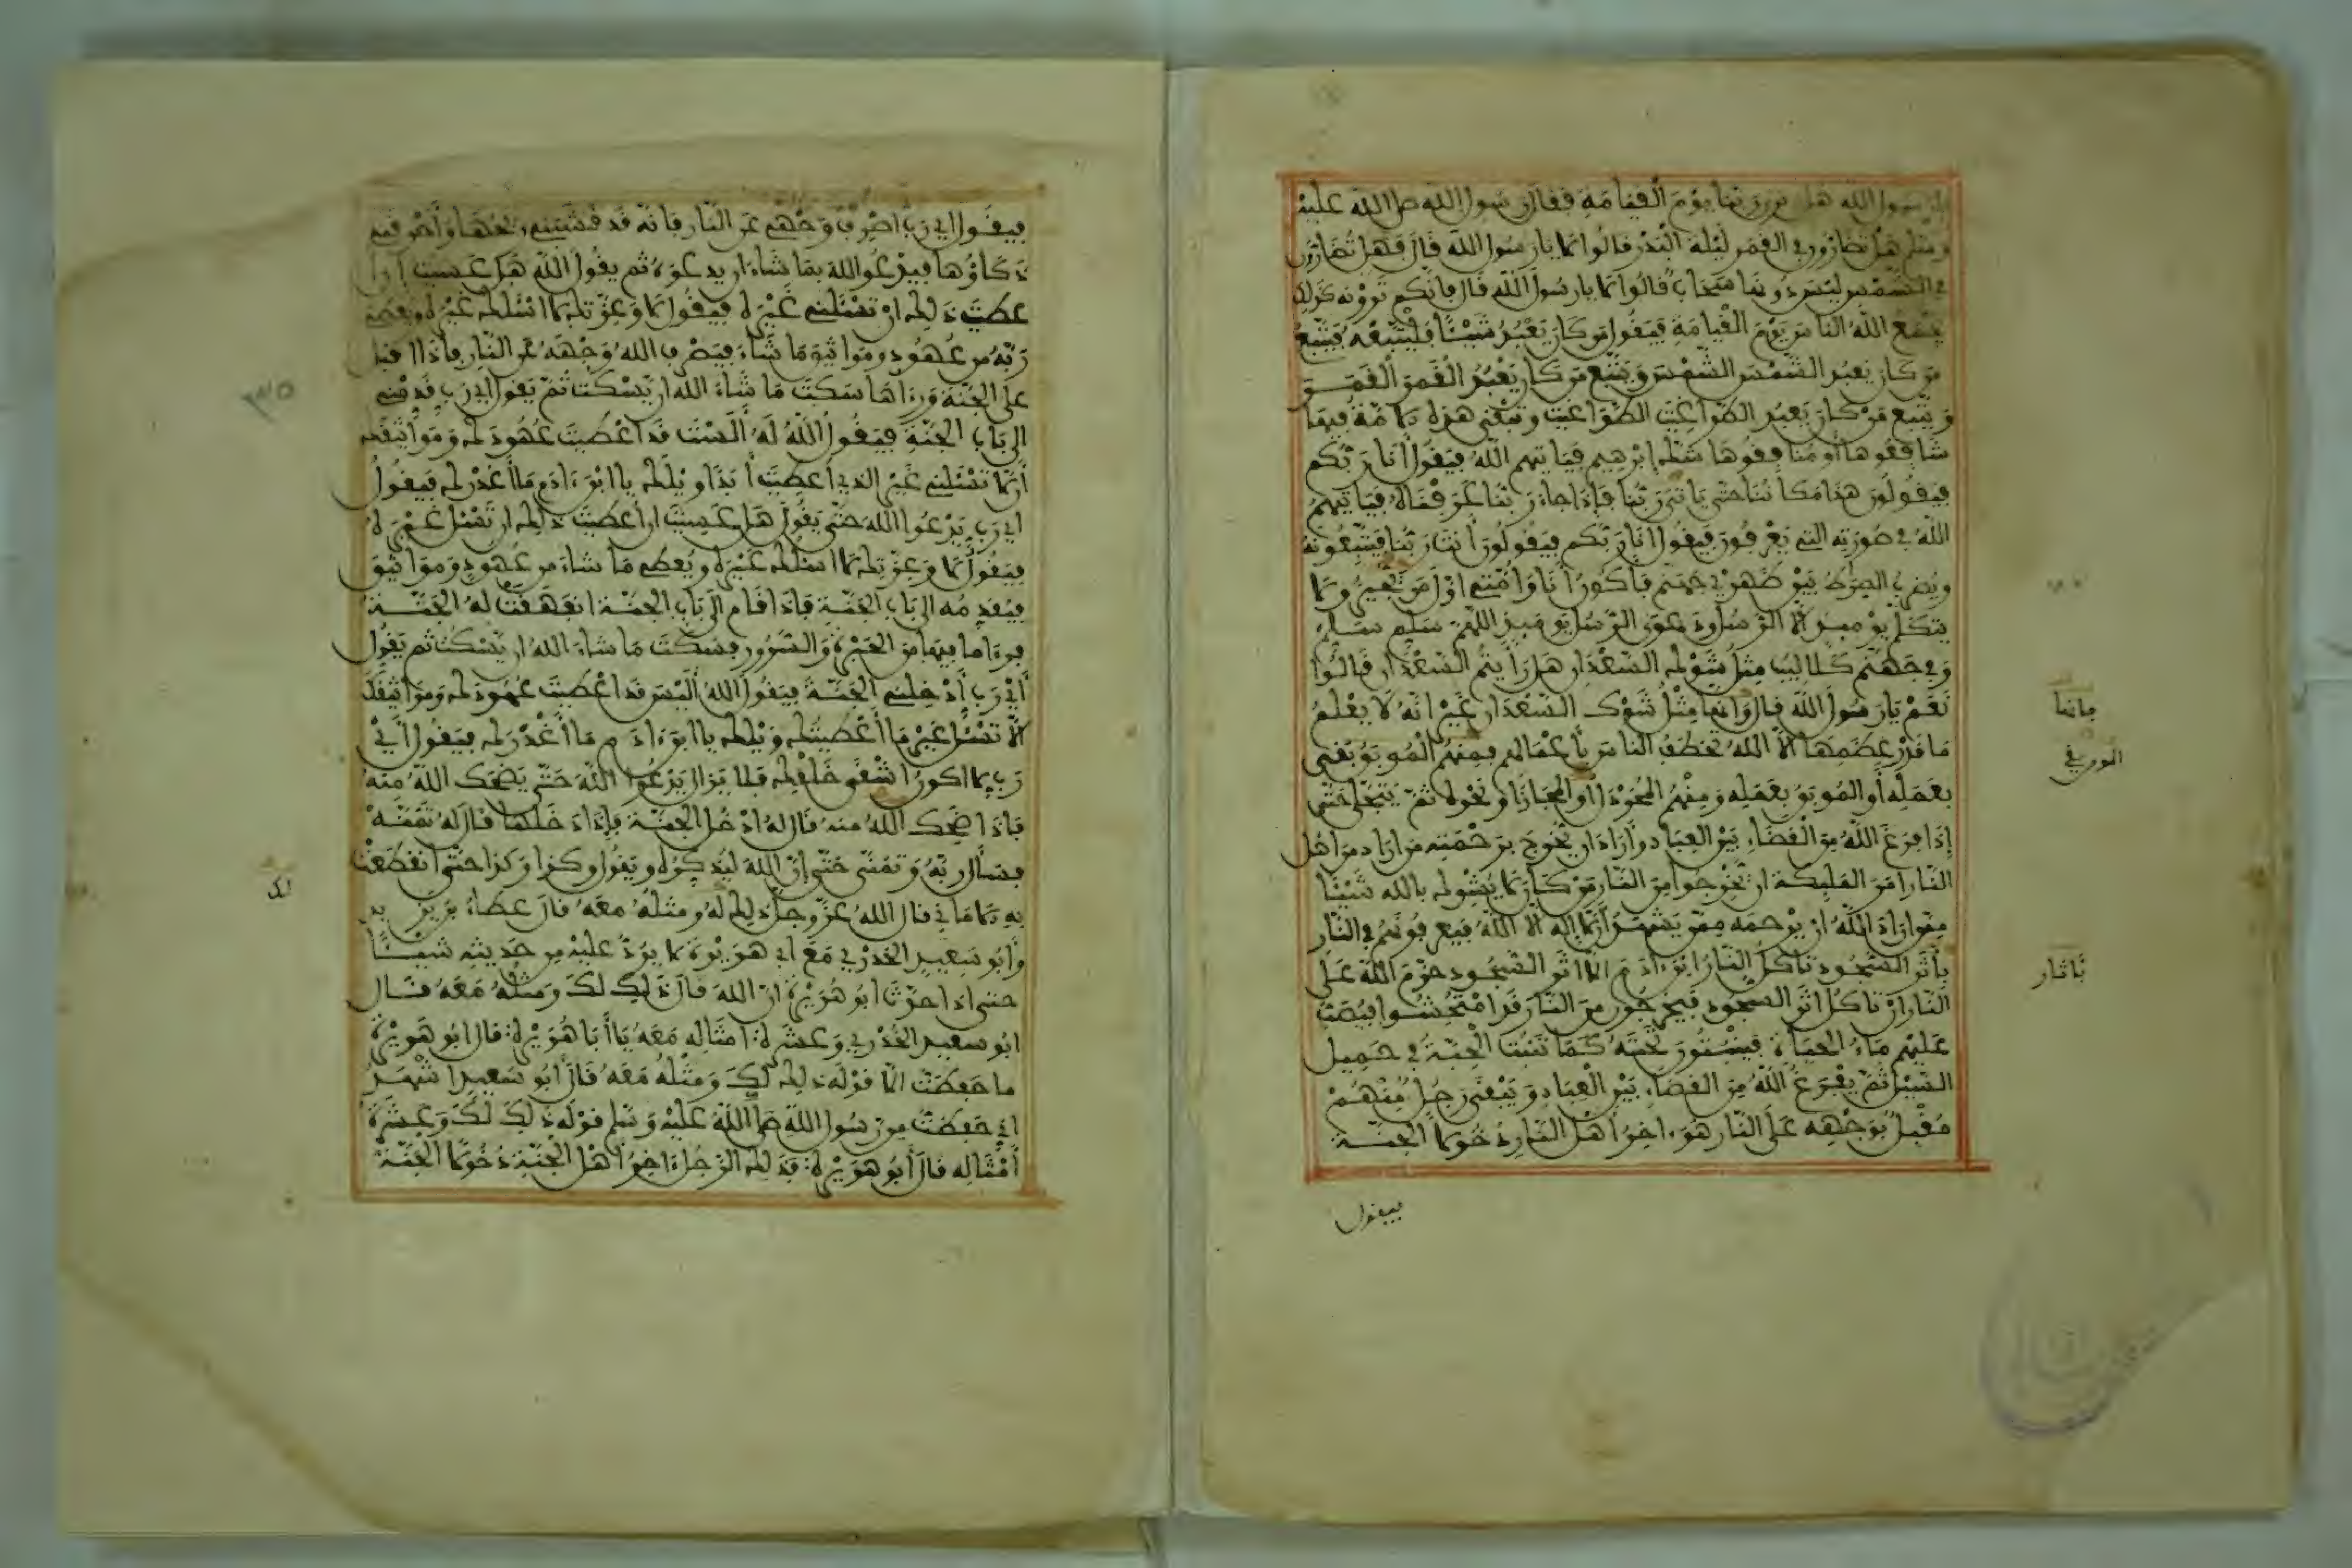 يا رسول الله هل نرى ربنا يوم القيامة فقال رسول الله صلى الله عليه
وسلم هل تضارون في القمر ليلة البدر قالوا لا يا رسول الله قال فهل تضارون
في الشمس ليس دونها سحاب قالوا لا يا رسول الله قال فإنكم ترونه كذلك
يجمع الله الناس يوم القيامة فيقول من كان يعبد شيئا فليتبعه فيتبع
من كان يعبد الشمس الشمس ويتبع من كان يعبد القمر القمر
ويتبع من كان يعبد الطواغيت الطواغيت وتبقى هذه الامة فيها
شافعوها أو منافقوها شك إبرهيم فياتيهم الله فيقول أنا ربكم
فيقولون هذا مكاننا حتى ياتينا ربنا فإذا جاء ربنا عرفناه فياتيهم
الله في صورته التي يعرفون فيقول أنا ربكم فيقولون أنت ربنا فيتبعونه
ويضرب الصرط بين ظهري جهنم فأكون أنا وأمتي أول من يجيز ولا
يتكلم يومئذ الا الرسل ودعوى الرسل يومئذ اللهم سلم سلم
وفي جهنم كلاليب مثل شوك السعدان هل رأيتم السعدان قالوا
نعم يا رسول الله قال وانها مثل شوك السعدان غير انه لا يعلم
ما قدر عظمها الا الله تخطف الناس بأعمالهم فمنهم الموبق بقى
بعمله أو الموبق بعمله ومنهم المخردل او المجازى او نحوه ثم يتجلى حتى
إذا فرغ الله من القضاء بين العباد وأراد ان يخرج برحمته من اراد من اهل
النار امر الملئكة ان يخرجوا من النار من كان لا يشرك بالله شيئا
ممن اراد الله ان يرحمه ممن يشهد أن لا إله الا الله فيعرفونهم في النار
بأثر السجود تاكل النار ابن ءادم الا اثر السجود حرم الله على
النار ان تاكل اثر السجود فيخرجون من النار قد امتحشوا فيصب
عليهم ماء الحياة فينبتون تحته كما تنبت الحبة في حميل
السيل ثم يفرغ الله من القضاء بين العباد ويبقى رجل منهم
مقبل بوجهه على النار هو ءاخر أهل النار دخولا الجنة
فيقول
فإنها
بآثار
فيقول اي رب اصرف وجهي عن النار فإنه قد قشبني ريحها وأحرقني
ذكاؤها فيدعو الله بما شاء ان يدعوه ثم يقول الله هل عسيت ان
أعطيت ذلك ان تسئلني غيره فيقول لا وعزتك لا اسئلك غيره ويعطي
ربه من عهود ومواثيق ما شاء فيصرف الله وجهه عن النار فإذا اقبل
على الجنة ورءاها سكت ما شاء الله ان يسكت ثم يقول اي رب قدمني
الى باب الجنة فيقول الله له ألست قد اعطيت عهودك ومواثيقك
أن لا تسئلني غير الذي أعطيت أبدا ويلك يا ابن ءادم ما أغدرك فيقول
اي رب يدعوا الله حتى يقول هل عسيت ان أعطيت ذلك ان تسئل غيره
فيقول لا وعزتك لا اسئلك غيره ويعطي ما شاء من عهود ومواثيق
فيقدمه الى باب الجنة فإذا قام الى باب الجنة انفهقت له الجنة
فرءا ما فيها من الحبرة والسرور فيسكت ما شاء الله ان يسكت ثم يقول
أي رب أدخلني الجنة فيقول الله أليس قد اعطيت عهودك ومواثيقك
ألا تسئل غير ما أعطيتك ويلك يا ابن ءادم ما أغدرك فيقول أي
رب لا اكون اشقى خلقك فلا يزال يدعوا الله حتى يضحك الله منه
فإذا ضحك الله منه قال له ادخل الجنة فإذا دخلها قال له تمنه
فسأل ربه وتمنى حتى إن الله ليذكره ويقول وكذا وكذا حتى انقطعت
به الاماني قال الله عز وجل ذلك له ومثله معه قال عطاء بن يزيد
وأبو سعيد الخدري مع ابي هريرة لا يرد عليه من حديثه شيئا
حتى اذا حدث ابو هريرة ان الله قال ذلك لك ومثله معه قال
ابو سعيد الخدري وعشرة امثاله معه يا أبا هريرة قال ابو هريرة
ما حفظت الا قوله ذلك لك ومثله معه قال أبو سعيد اشهد
اني حفظت من رسول الله صلى الله عليه وسلم قوله ذلك لك وعشرة
أمثاله قال أبو هريرة فذلك الرجل ءاخر اهل الجنة دخولا الجنة
لك